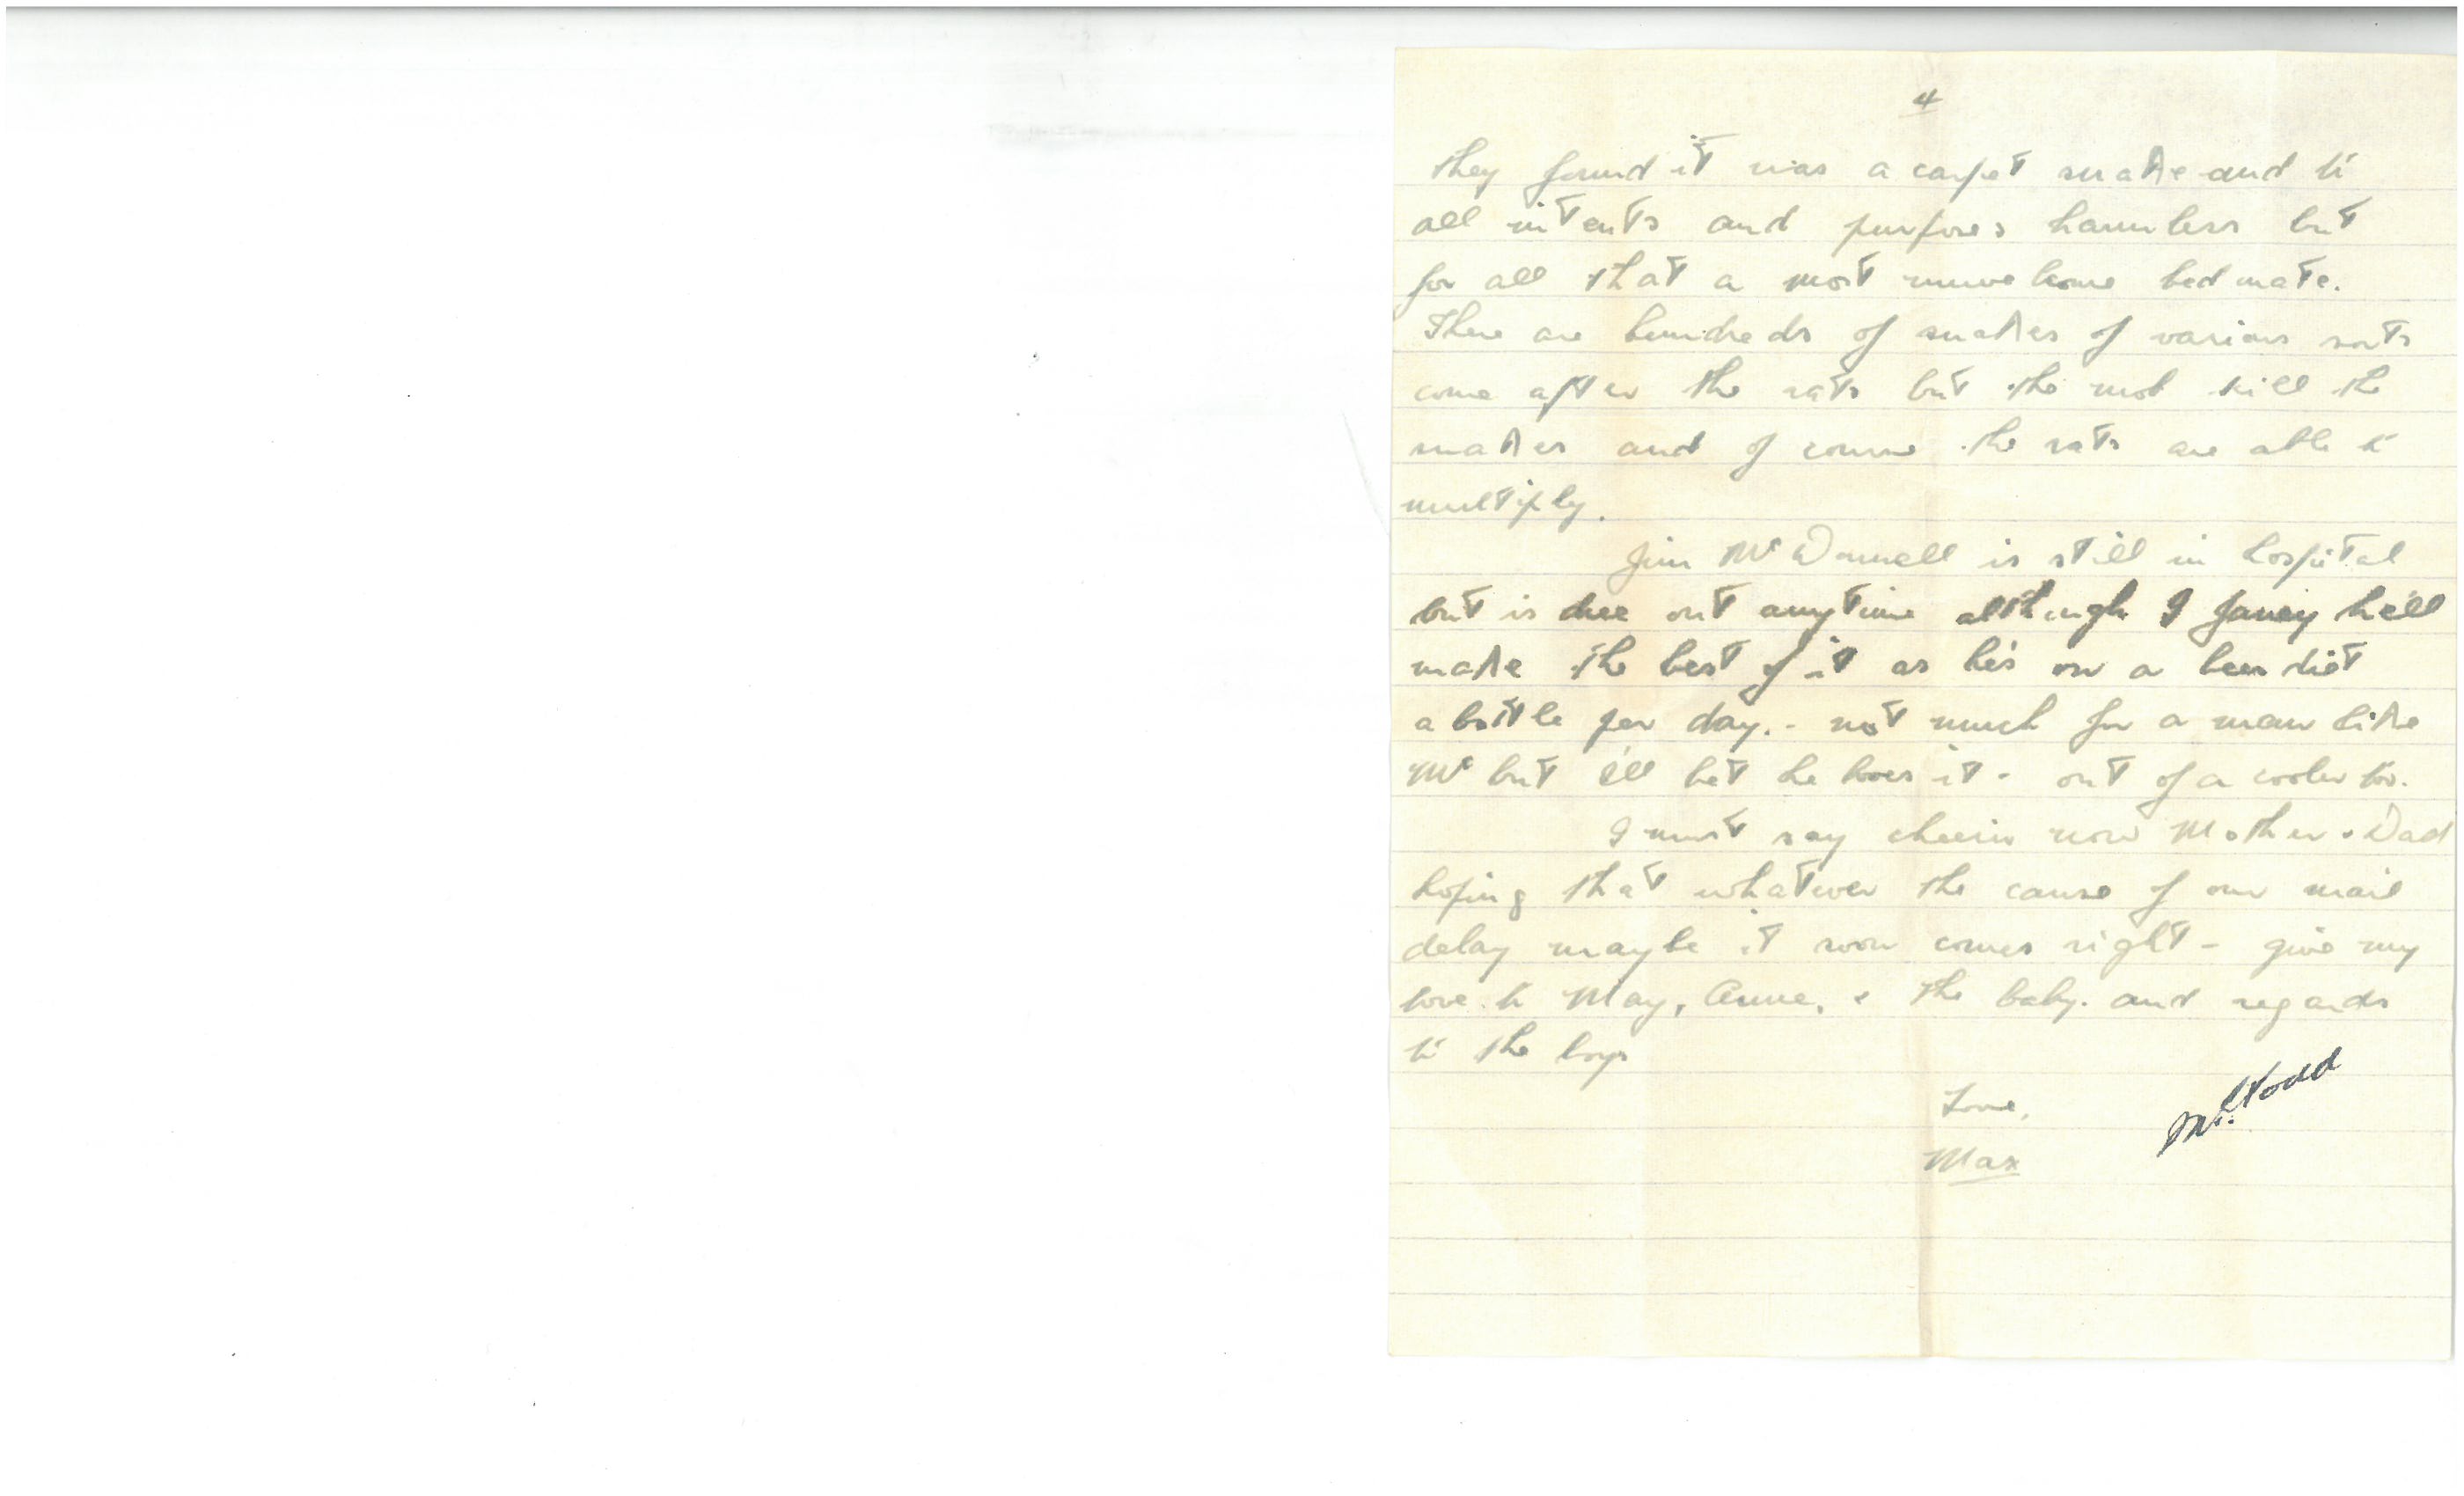 4
they found it was a carpet snake and to
all intents and purposes harmless but
for all that a most unwelcome bed mate.
There are hundreds of snakes of various sorts
come after the rats but the mob kill the
snakes and of course the rats are able to
multiply.
Jim McDonnell is still in hospital
but is due out anytime although I fancy he'll
make the best of it as he's on a beer diet
a bottle per day. - not much for a man like
Mc but I'll bet he loves it - out of a cooler too.
I must say cheerio now Mother & Dad
hoping that whatever the cause of our mail
delay maybe it soon comes right - give my
love to May, Anne, & the baby. and regards
to the boys
Love,
Max